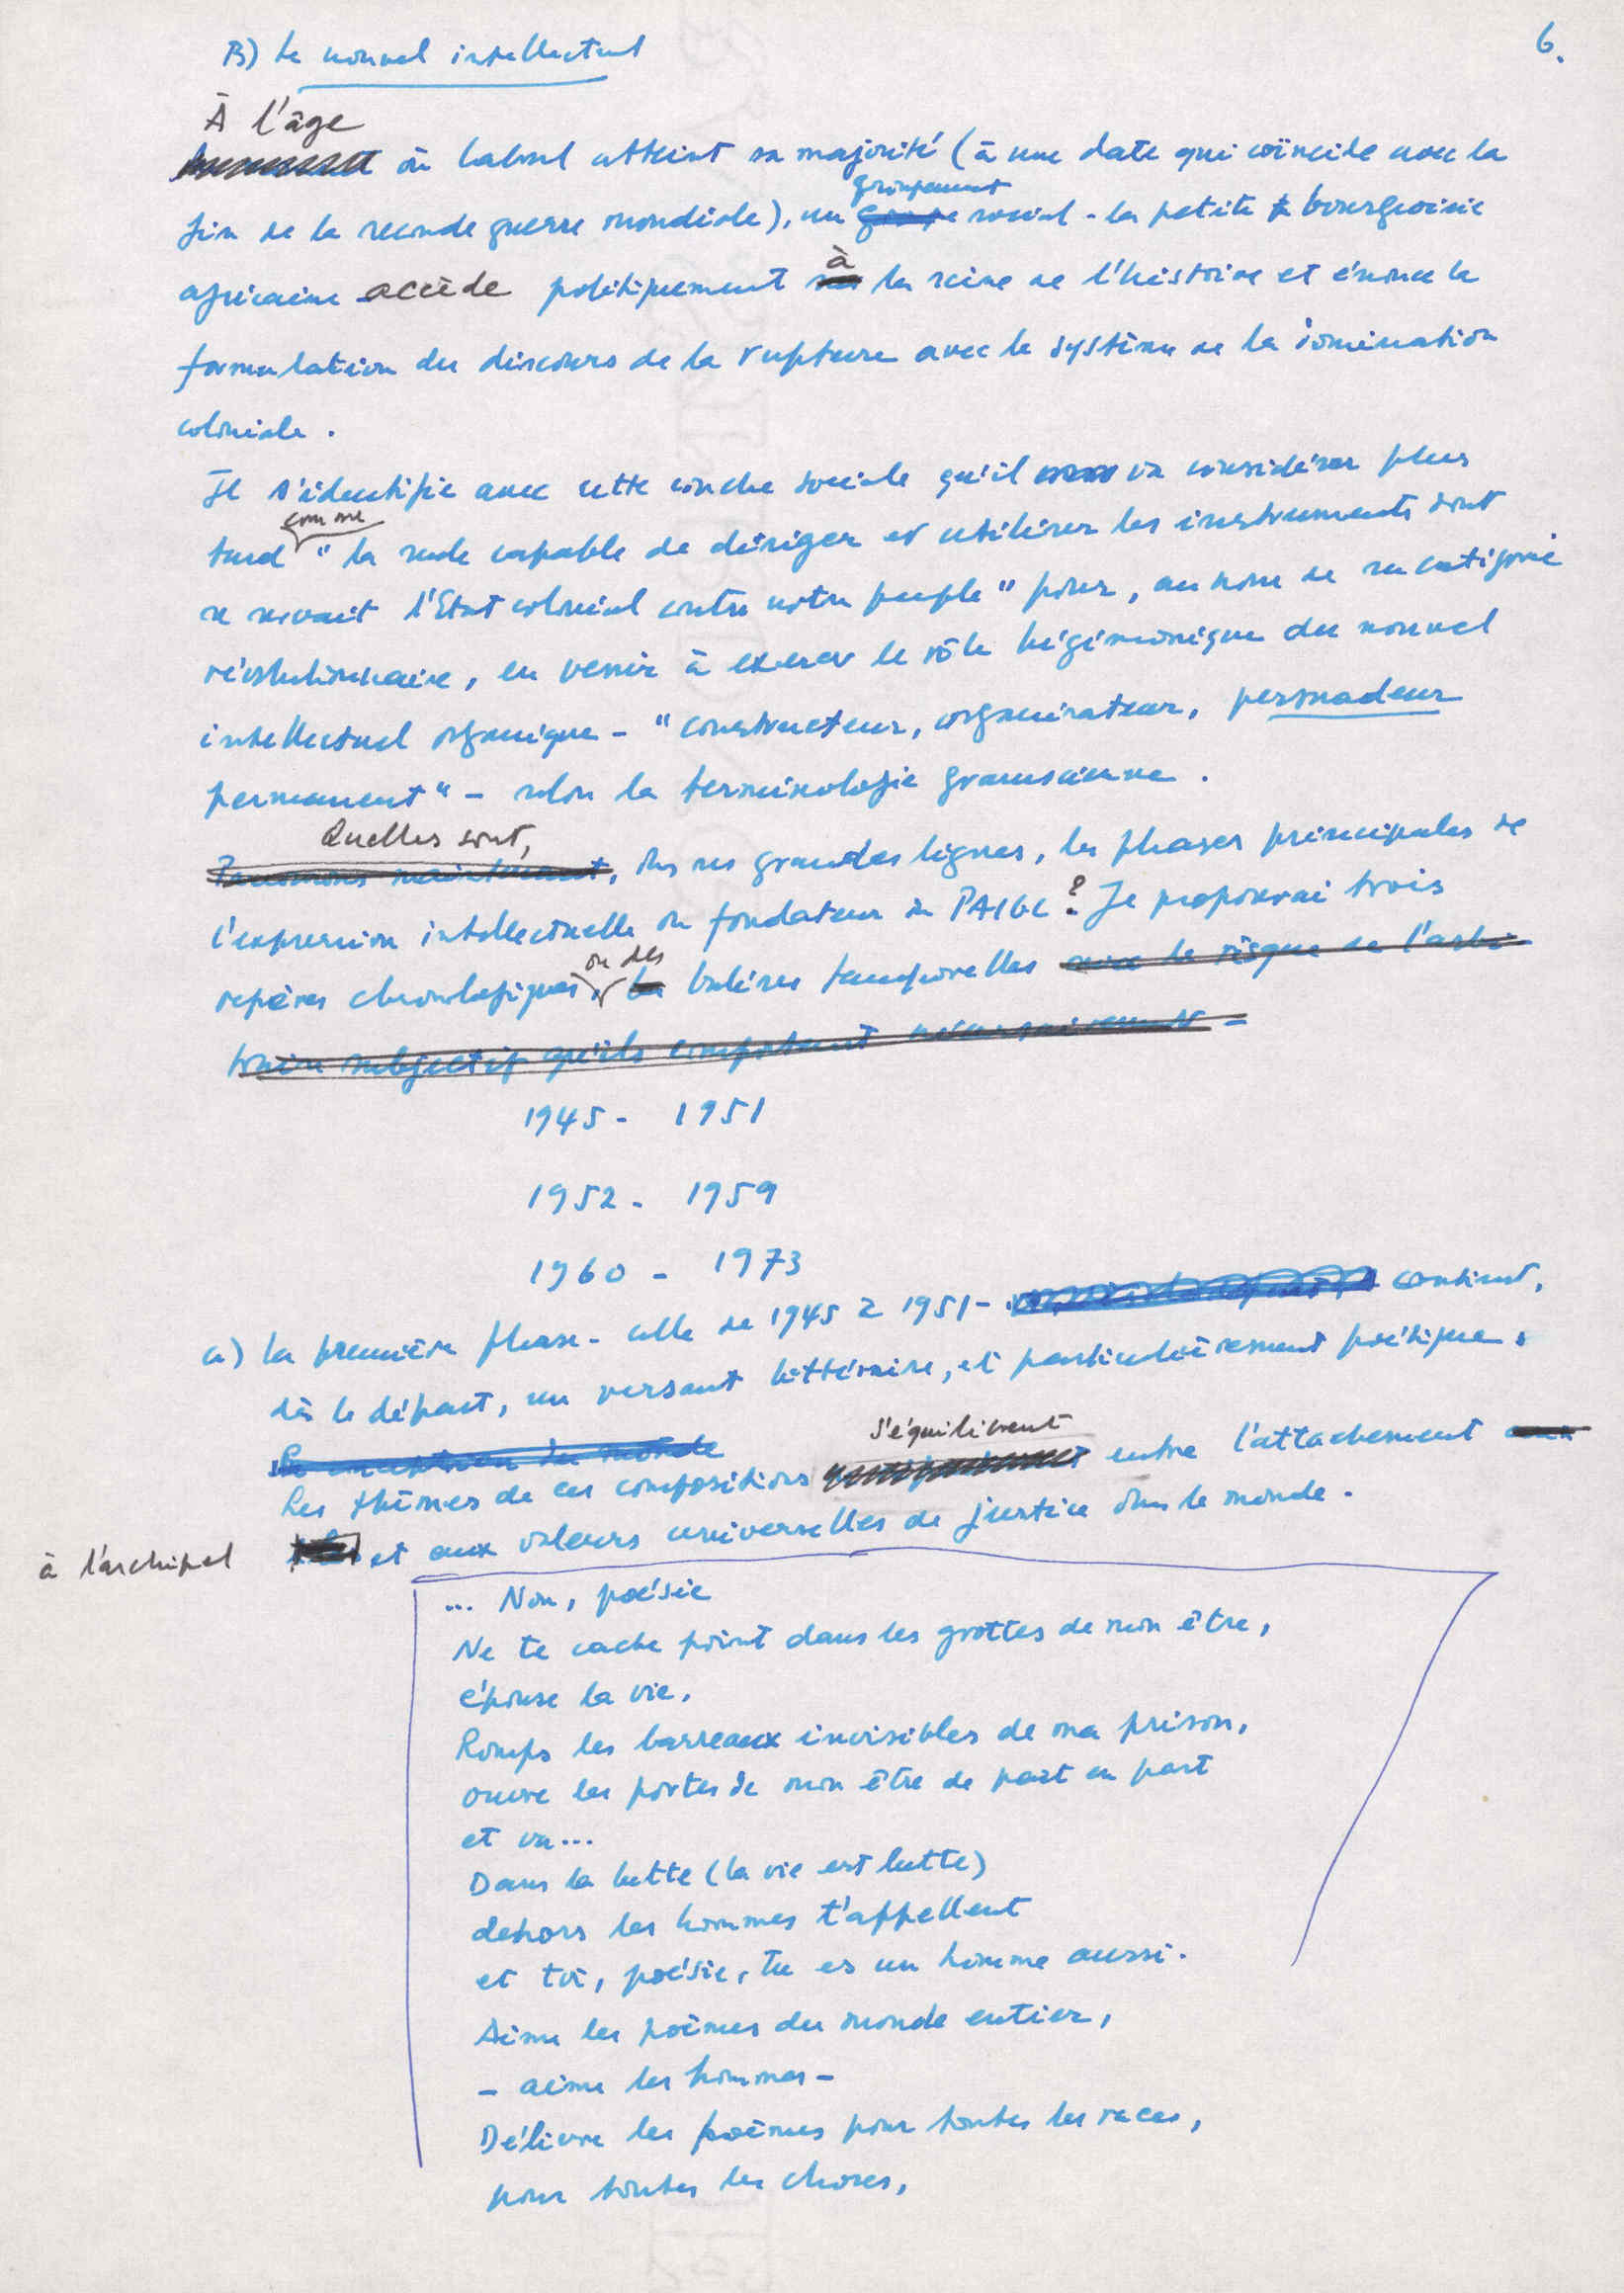 6.
B) Le nouvel intellectuel
À l'âge
où Cabral atteint sa majorité (à une date qui coïncide avec la
groupement
fin de la seconde guerre mondiale), un groupe social - la petite bourgeoisie
à
africaine accède politiquement la scène de l'histoire et énonce la
formulation du discours de la rupture avec le système de la domination
coloniale.
Il s'identifie avec cette couche sociale qu'il va considérer plus
comme
tard "la seule capable de diriger et utiliser les instruments dont
se servait l'Etat colonial contre notre peuple" pour, au nom de sa catégorie
révolutionnaire, en venir à exercer le rôle hégémonique du nouvel
intellectuel organique - "constructeur, organisateur, persuadeur
permanent" - selon la terminologie gramscienne.
Quelles sont,
maintenant, dans ses grandes lignes, les phases principales de
l'expression intellectuelle du fondateur du PAIGC ? Je proposerai trois
ou des
repères chronologiques, balises temporelles avec le risque de l'arbi-
traire subjectif qu'ils comportent nécessairement -
1945 - 1951
1952 - 1959
1960 - 1973
a) La première phase - celle de 1945 à 1951 - contient,
dès le départ, un versant littéraire, et particulièrement poétique.
La conception du monde
s'équilibrent
Les thèmes de ces compositions entre l'attachement aux
à l'archipel et aux valeurs universelles de justice dans le monde.
... Non, poésie
Ne te cache point dans les grottes de mon être,
épouse la vie,
Romps les barreaux invisibles de ma prison,
ouvre les portes de mon être de part en part
et va...
Dans la lutte (la vie est lutte)
dehors les hommes t'appellent
et toi, poésie, tu es un homme aussi.
Aime les poèmes du monde entier,
- aime les hommes -
Délivre les poèmes pour toutes les races,
pour toutes les choses,